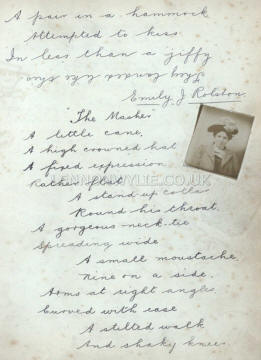 A pair in a hammock
Attempted to kiss
In less than a jiffy
They landed like this
Emily J Rolston.
"The Masher"
A little cane,
A high crowned hat
A fixed expression
Rather flat
A stand-up collar
Round his throat.
A gorgeous neck-tie
Spreading wide
A small moustache
Nine on a side.
Arms at right angles
Curved with ease
A stilted walk
And shaky knees.
LENNONWYLIE.CO.UK